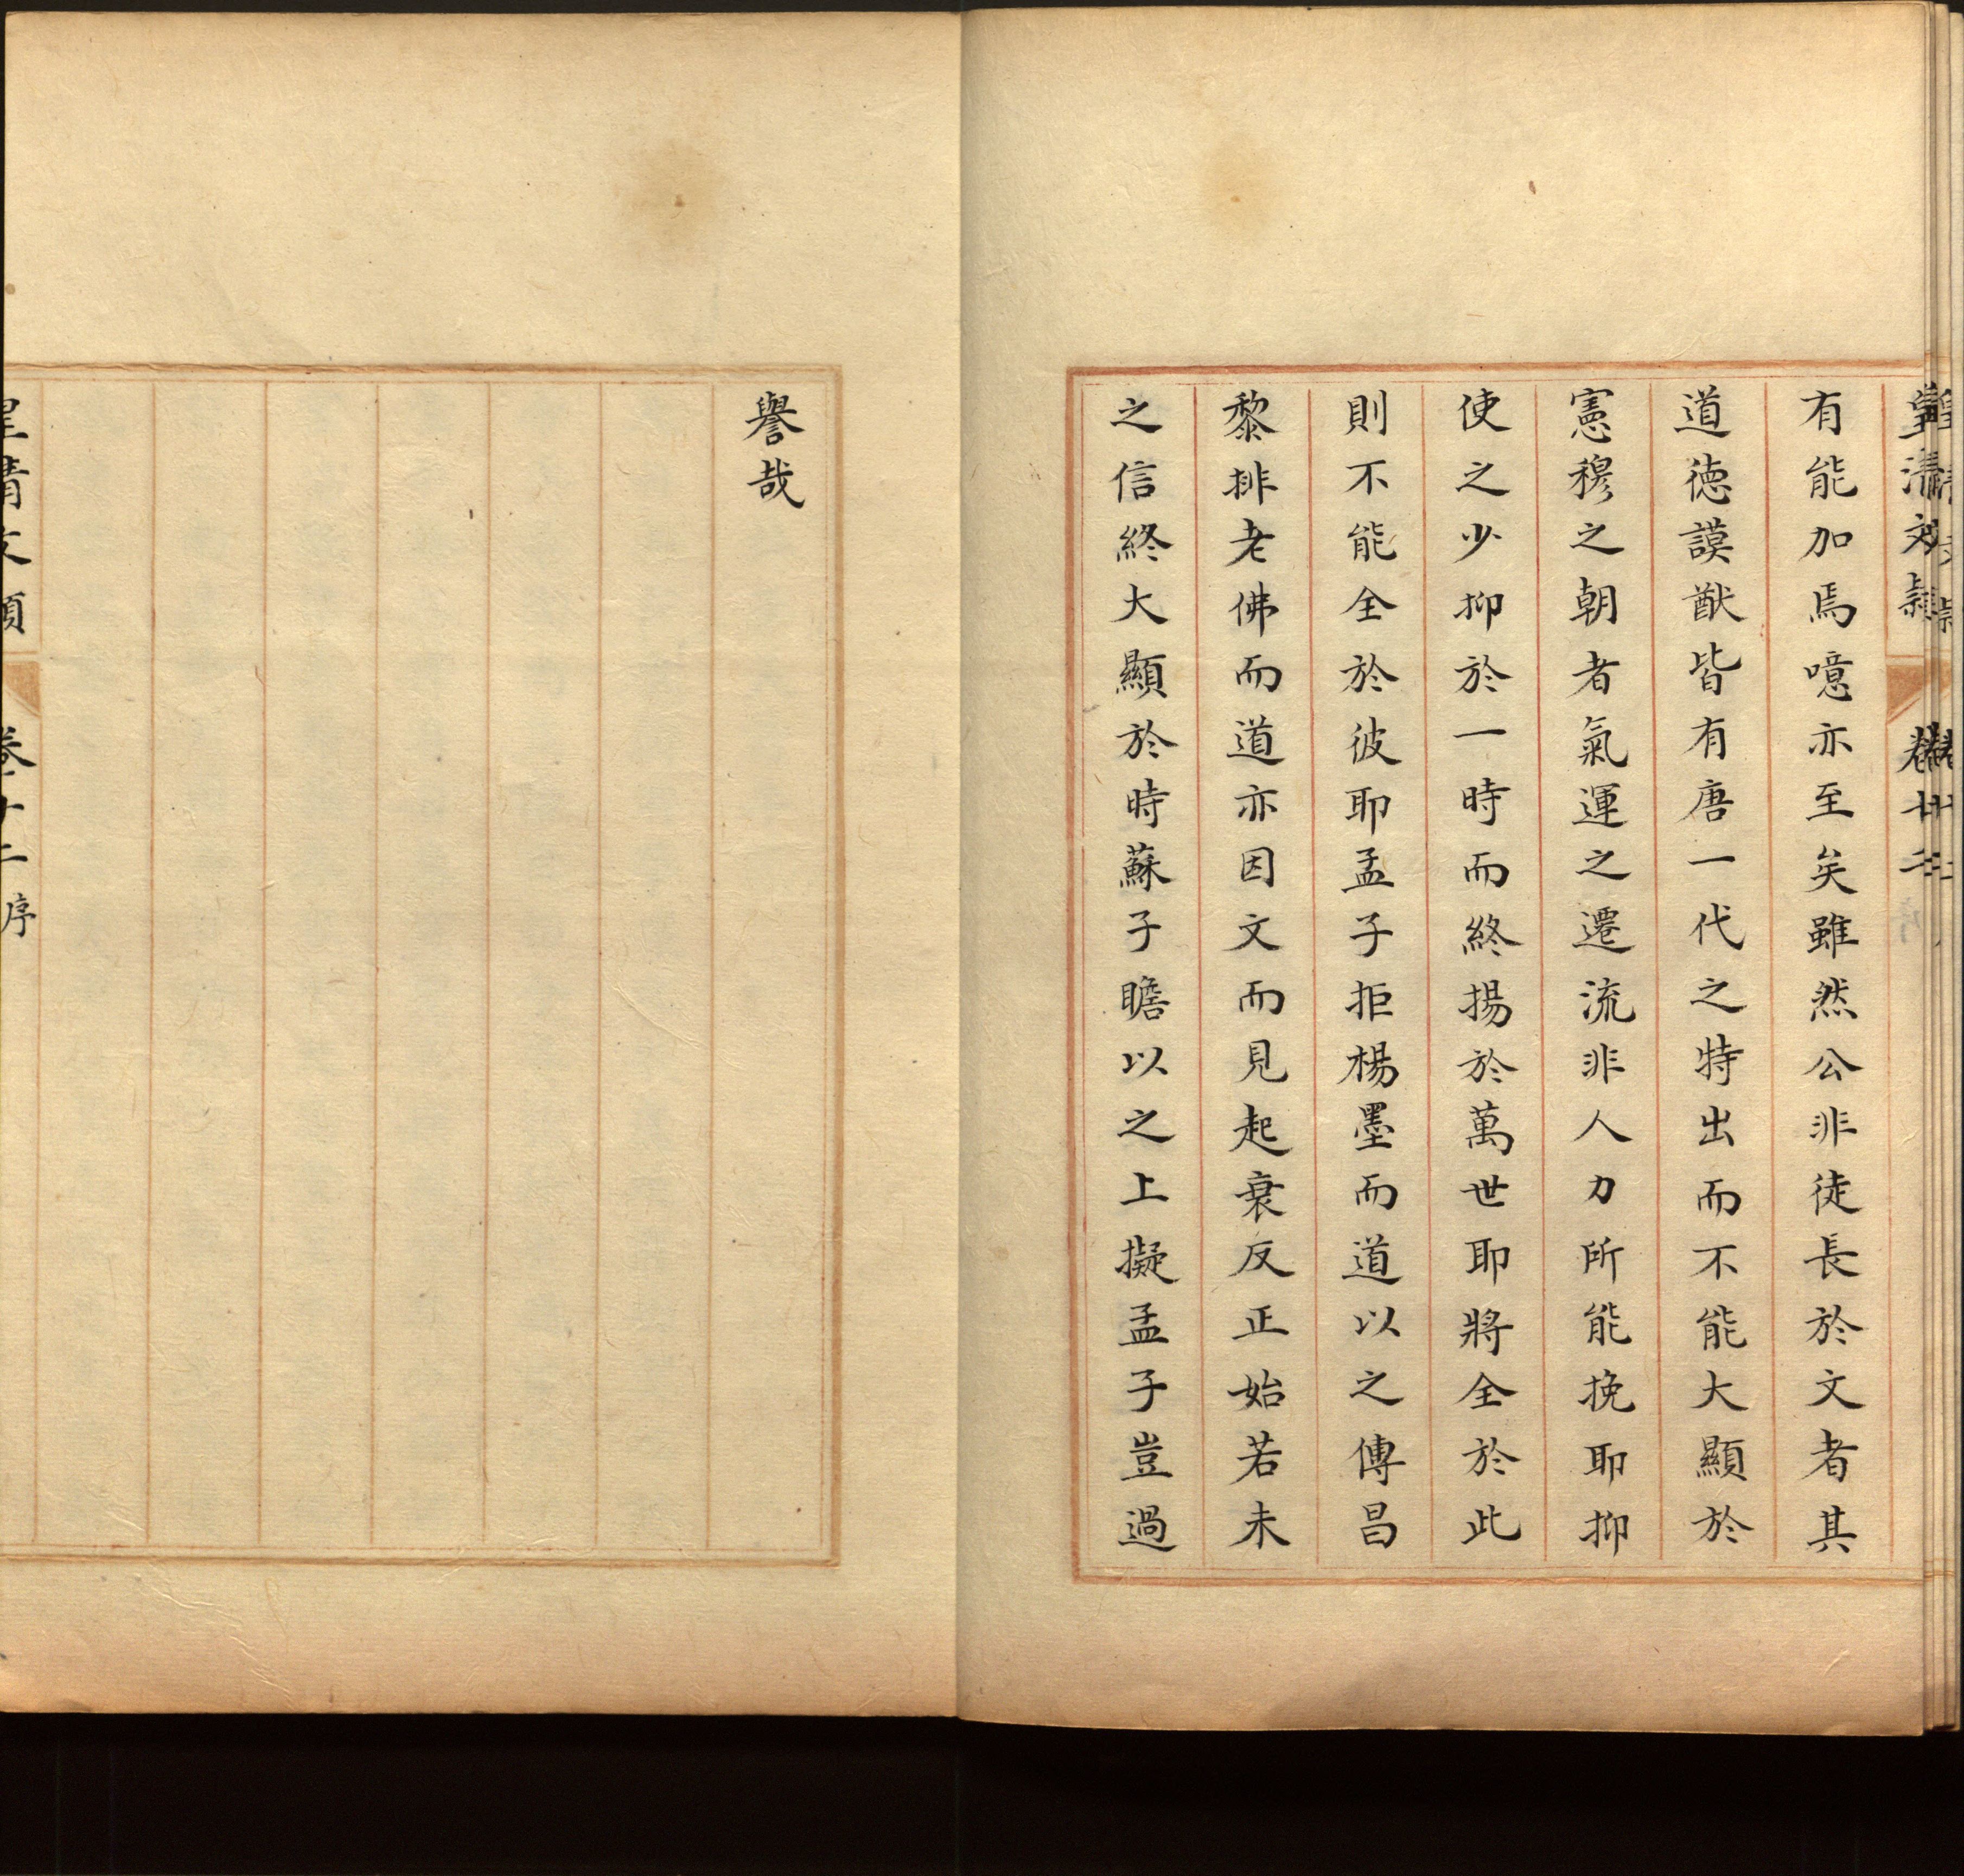 皇清文穎　卷廿二
有能加焉噫亦至矣雖然公非徒長於文者其
道德謨猷皆有唐一代之特出而不能大顯於
憲穆之朝者氣運之遷流非人力所能挽耶抑
使之少抑於一時而終揚於萬世耶將全於此
則不能全於彼耶孟子拒楊墨而道以之傳昌
黎排老佛而道亦因文而見起衰反正始若未
之信終大顯於時蘇子瞻以之上擬孟子豈過
譽哉
皇清文穎　卷廿二　序